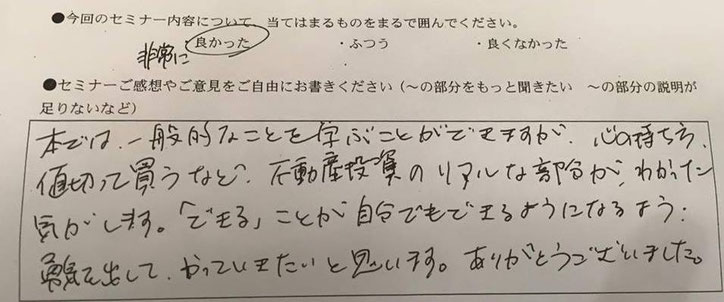 ●今回のセミナー内容について、当てはまるものをまるで囲んでください。
非常に 良かった ・ふつう ・良くなかった
●セミナーご感想やご意見をご自由にお書きください（～の部分をもっと聞きたい ～の部分の説明が
足りないなど）
本では、一般的なことを学ぶことができますが、心の持ち方、
値切って買うなど、不動産投資のリアルな部分が、わかった
気がします。「できる」ことが自分でもできるようになるよう
勇気を出して、やっていきたいと思います。ありがとうございました。